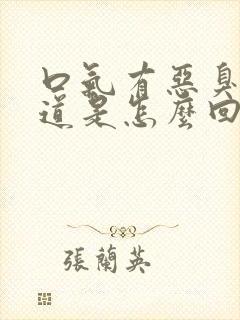 口氣有惡臭
道是怎麼回
張蘭英